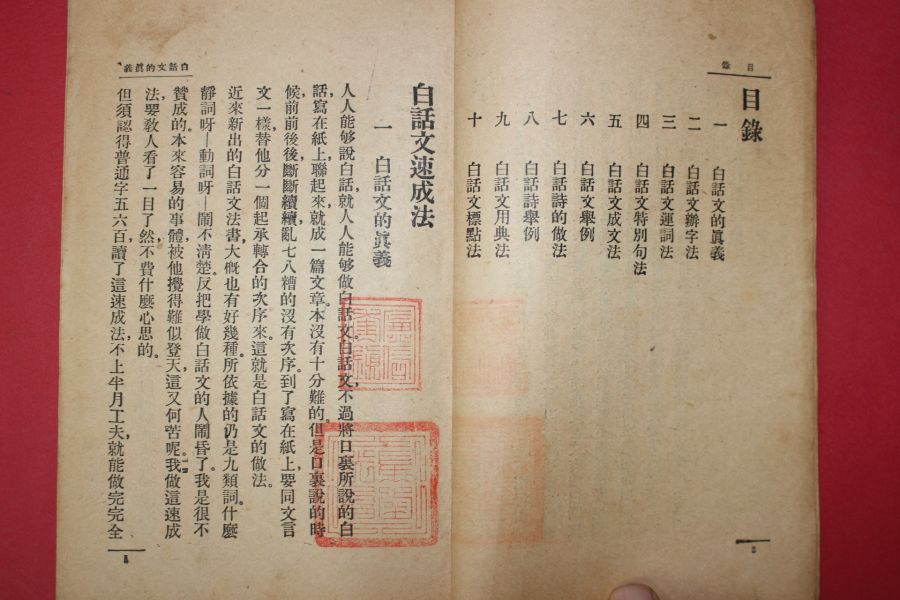 目錄
目錄
一　白話文的眞義
二　白話文辦字法
三　白話文運詞法
四　白話文特別句法
五　白話文成文法
六　白話文舉例
七　白話詩的做法
八　白話詩舉例
九　白話文用典法
十　白話文標點法
白話文的眞義
白話文速成法
一　白話文的眞義
人人能够說白話，就人人能够做白話文。白話文，不過將口裏所說的白
話，寫在紙上，聯起來就成一篇文章。本沒有十分難的。但是口裏說的時
候，前前後後，斷斷續續，亂七八糟的沒有次序。到了寫在紙上，要同文言
文一樣，替他分一個起承轉合的次序來。這就是白話文的做法。
近來新出的白話文法書，大槪也有好幾種。所依據的仍是九類詞。什麼
靜詞呀—動詞呀—鬧不清楚。反把學做白話文的人鬧昏了。我是很不
贊成的。本來容易的事體，被他攪得難似登天，這又何苦呢。我做這速成
法，要敎人看了一目了然，不費什麼心思的。
但須認得普通字五六百，讀了這速成法，不上半月工夫，就能做完完全